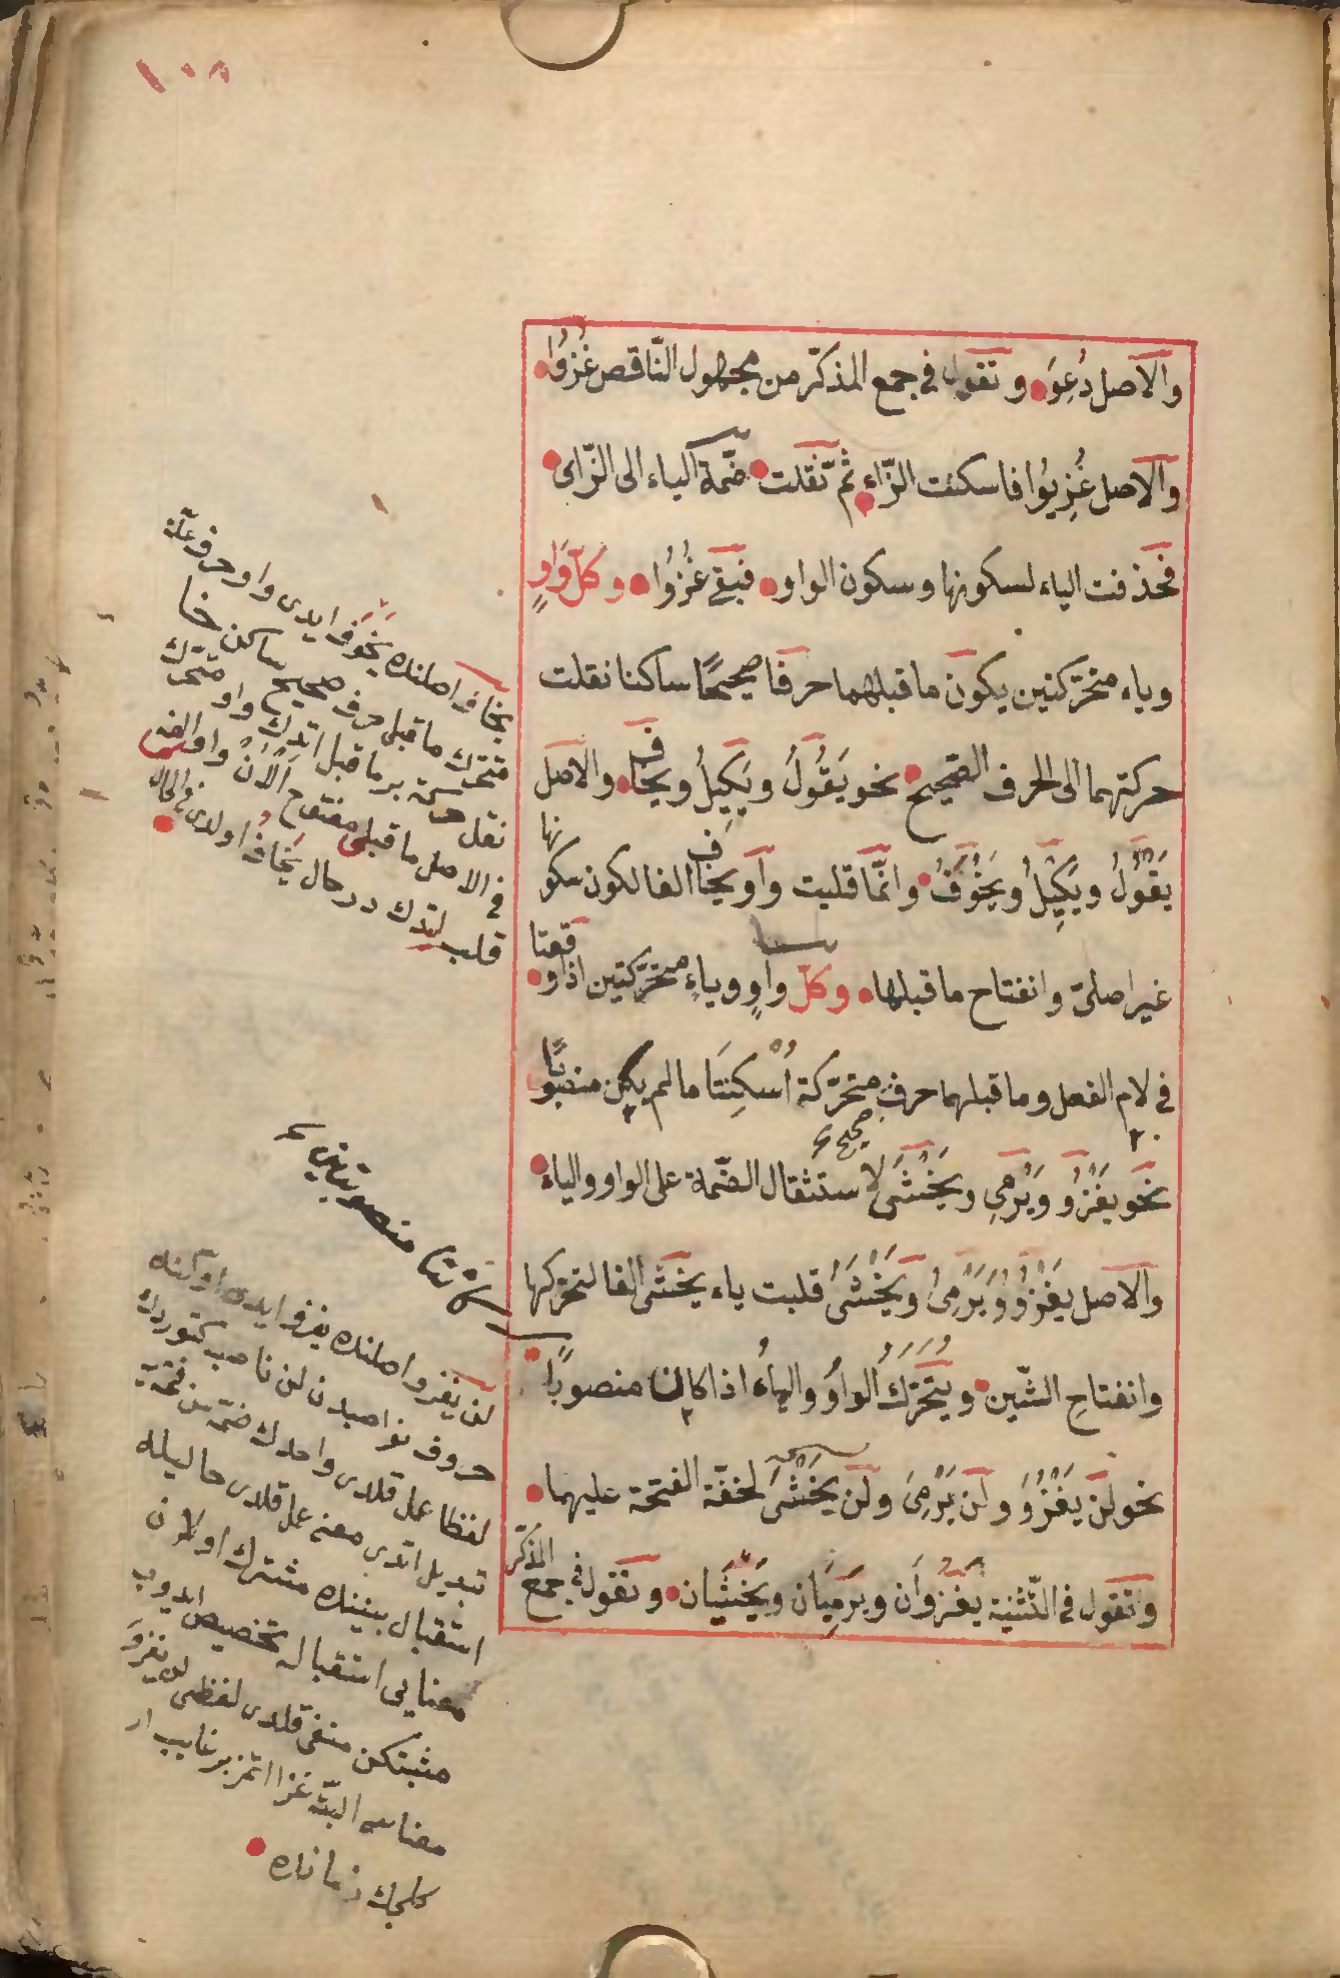 ١٠٨
والاصل دُعِوَ وتقول فى جمع المذكّر من مجهول النّاقص غُزُوْا
والاصل غُزِيُوا فاسكنت الزّاء ثمّ نقلت ضمّة الياء الى الزّاى
فحذفت الياء لسكونها وسكون الواو فبقى غُزُوا وكلّ وَاوٍ
وياء متحرّكتين يكون ما قبلهما حرفا صحيحًا ساكنا نقلت
حركتهما الى الحرف الصّحيح نحو يَقُولُ ويَكِيلُ ويخاف والاصل
يَقْوُلُ ويَكْيِلُ ويَخْوَفُ وانّما قلبت واو يخاف الفا لكون سكونها
غير اصلىّ وانفتاح ما قبلها وكلّ واوٍ وياءٍ متحرّكتين اذا وقعتا
فى لام الفعل وما قبلهما حرف متحرّكة اُسْكِنَتَا ما لم يكن منصوبًا
صحيح
نحو يغزُو ويَرْمِى ويَخْشَى لاستثقال الضّمة على الواو والياء
والاصل يَغْزُوُ ويَرْمِىُ ويَخْشَىُ قلبت ياء يخشى الفا لتحرّكها
وانفتاحِ الشّين ويتحَرّك الواوُ والياءُ اذا كان منصوبًا
نحو لن يَغْزُوَ ولن يَرْمِىَ ولن يَخْشَىَ لخفّة الفتحة عليهما
وتقول فى التّثنية يغزُوَان ويَرمِيَان ويَخْشَيَان وتقول فى جمع المذكّر
يخاف اصلنده يَخْوَفُ ايدى واو حرف علّة
متحرّك ما قبلى حرف صحيح ساكن
نقل حركة بر ما قبل اتدك واو متحرّك
فى الاصل ما قبلى مفتوح الآن واو الفه
قلب اتدك در حال يخاف اولدى فى الحال
منصوبتين
لن يغزو اصلنده يغزو ايدى اوّلنه
حروف نواصبدن لن ناصبه كتوردك
لفظا عمل قلدى واحدك ضمّه‌سن فتحه‌يه
تبديل اتدى معنى عمل قلدى حال ايله
استقبال بيننده مشترك اولان
معنايى استقباله تخصيص ايدوب
مثبتكن منفى قلدى لفظى لن يغزو
معناسه البتّه غزا اتمز بر غايب ار
كلجك زمانده